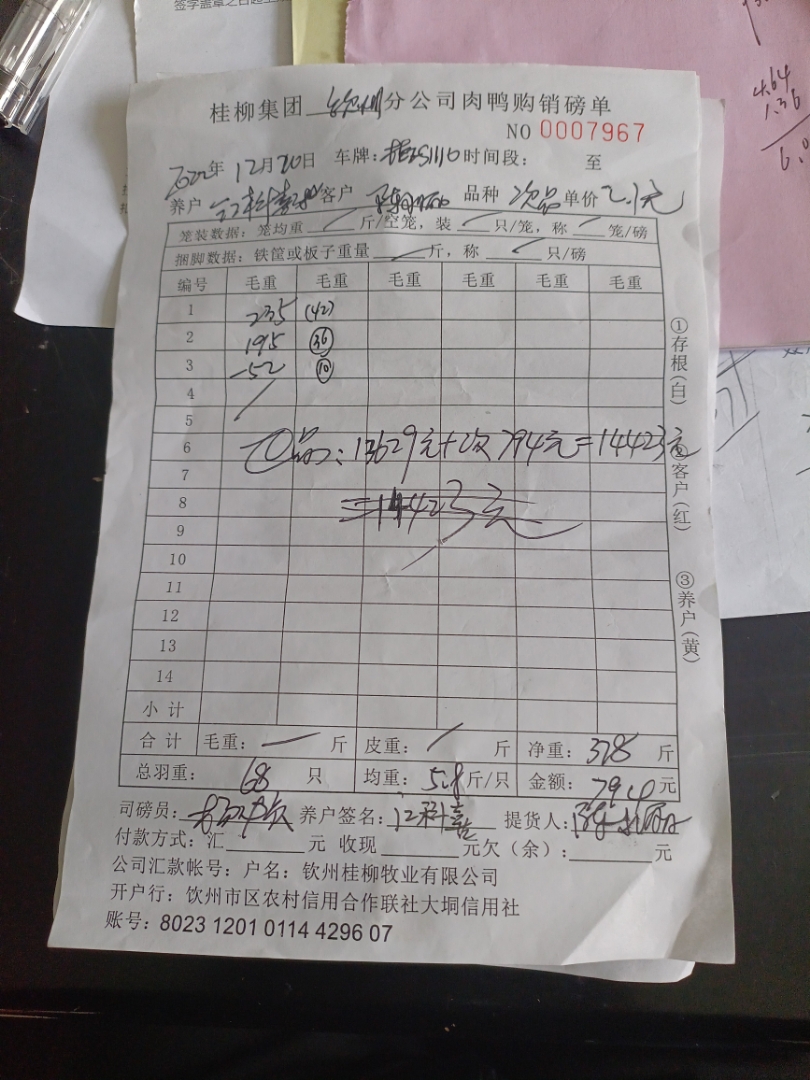 签字盖章之日起生
4.64
1.36
6.0
桂柳集团 钦州 分公司肉鸭购销磅单
NO 0007967
2022年12月20日 车牌: 时间段: 至
养户 客户 品种 次品 单价 2.1元
笼装数据: 笼均重 斤/空笼, 装 只/笼, 称 笼/磅
捆脚数据: 铁筐或板子重量 斤, 称 只/磅
编号 毛重 毛重 毛重 毛重 毛重 毛重
1 235 (42)
2 195 36
3 -52 10
4
5
6 正品: 13629元+次794元=14423元
7
8 =14423元
9
10
11
12
13
14
小计
合计 毛重: 斤 皮重: 斤 净重: 378 斤
总羽重: 68 只 均重: 5.8斤/只 金额: 794元
司磅员: 养户签名: 江科 提货人: 陈
付款方式: 汇 元 收现 元欠(余): 元
公司汇款帐号: 户名: 钦州桂柳牧业有限公司
开户行: 饮州市区农村信用合作联社大垌信用社
账号: 8023 1201 0114 4296 07
①存根(白)
②客户(红)
③养户(黄)